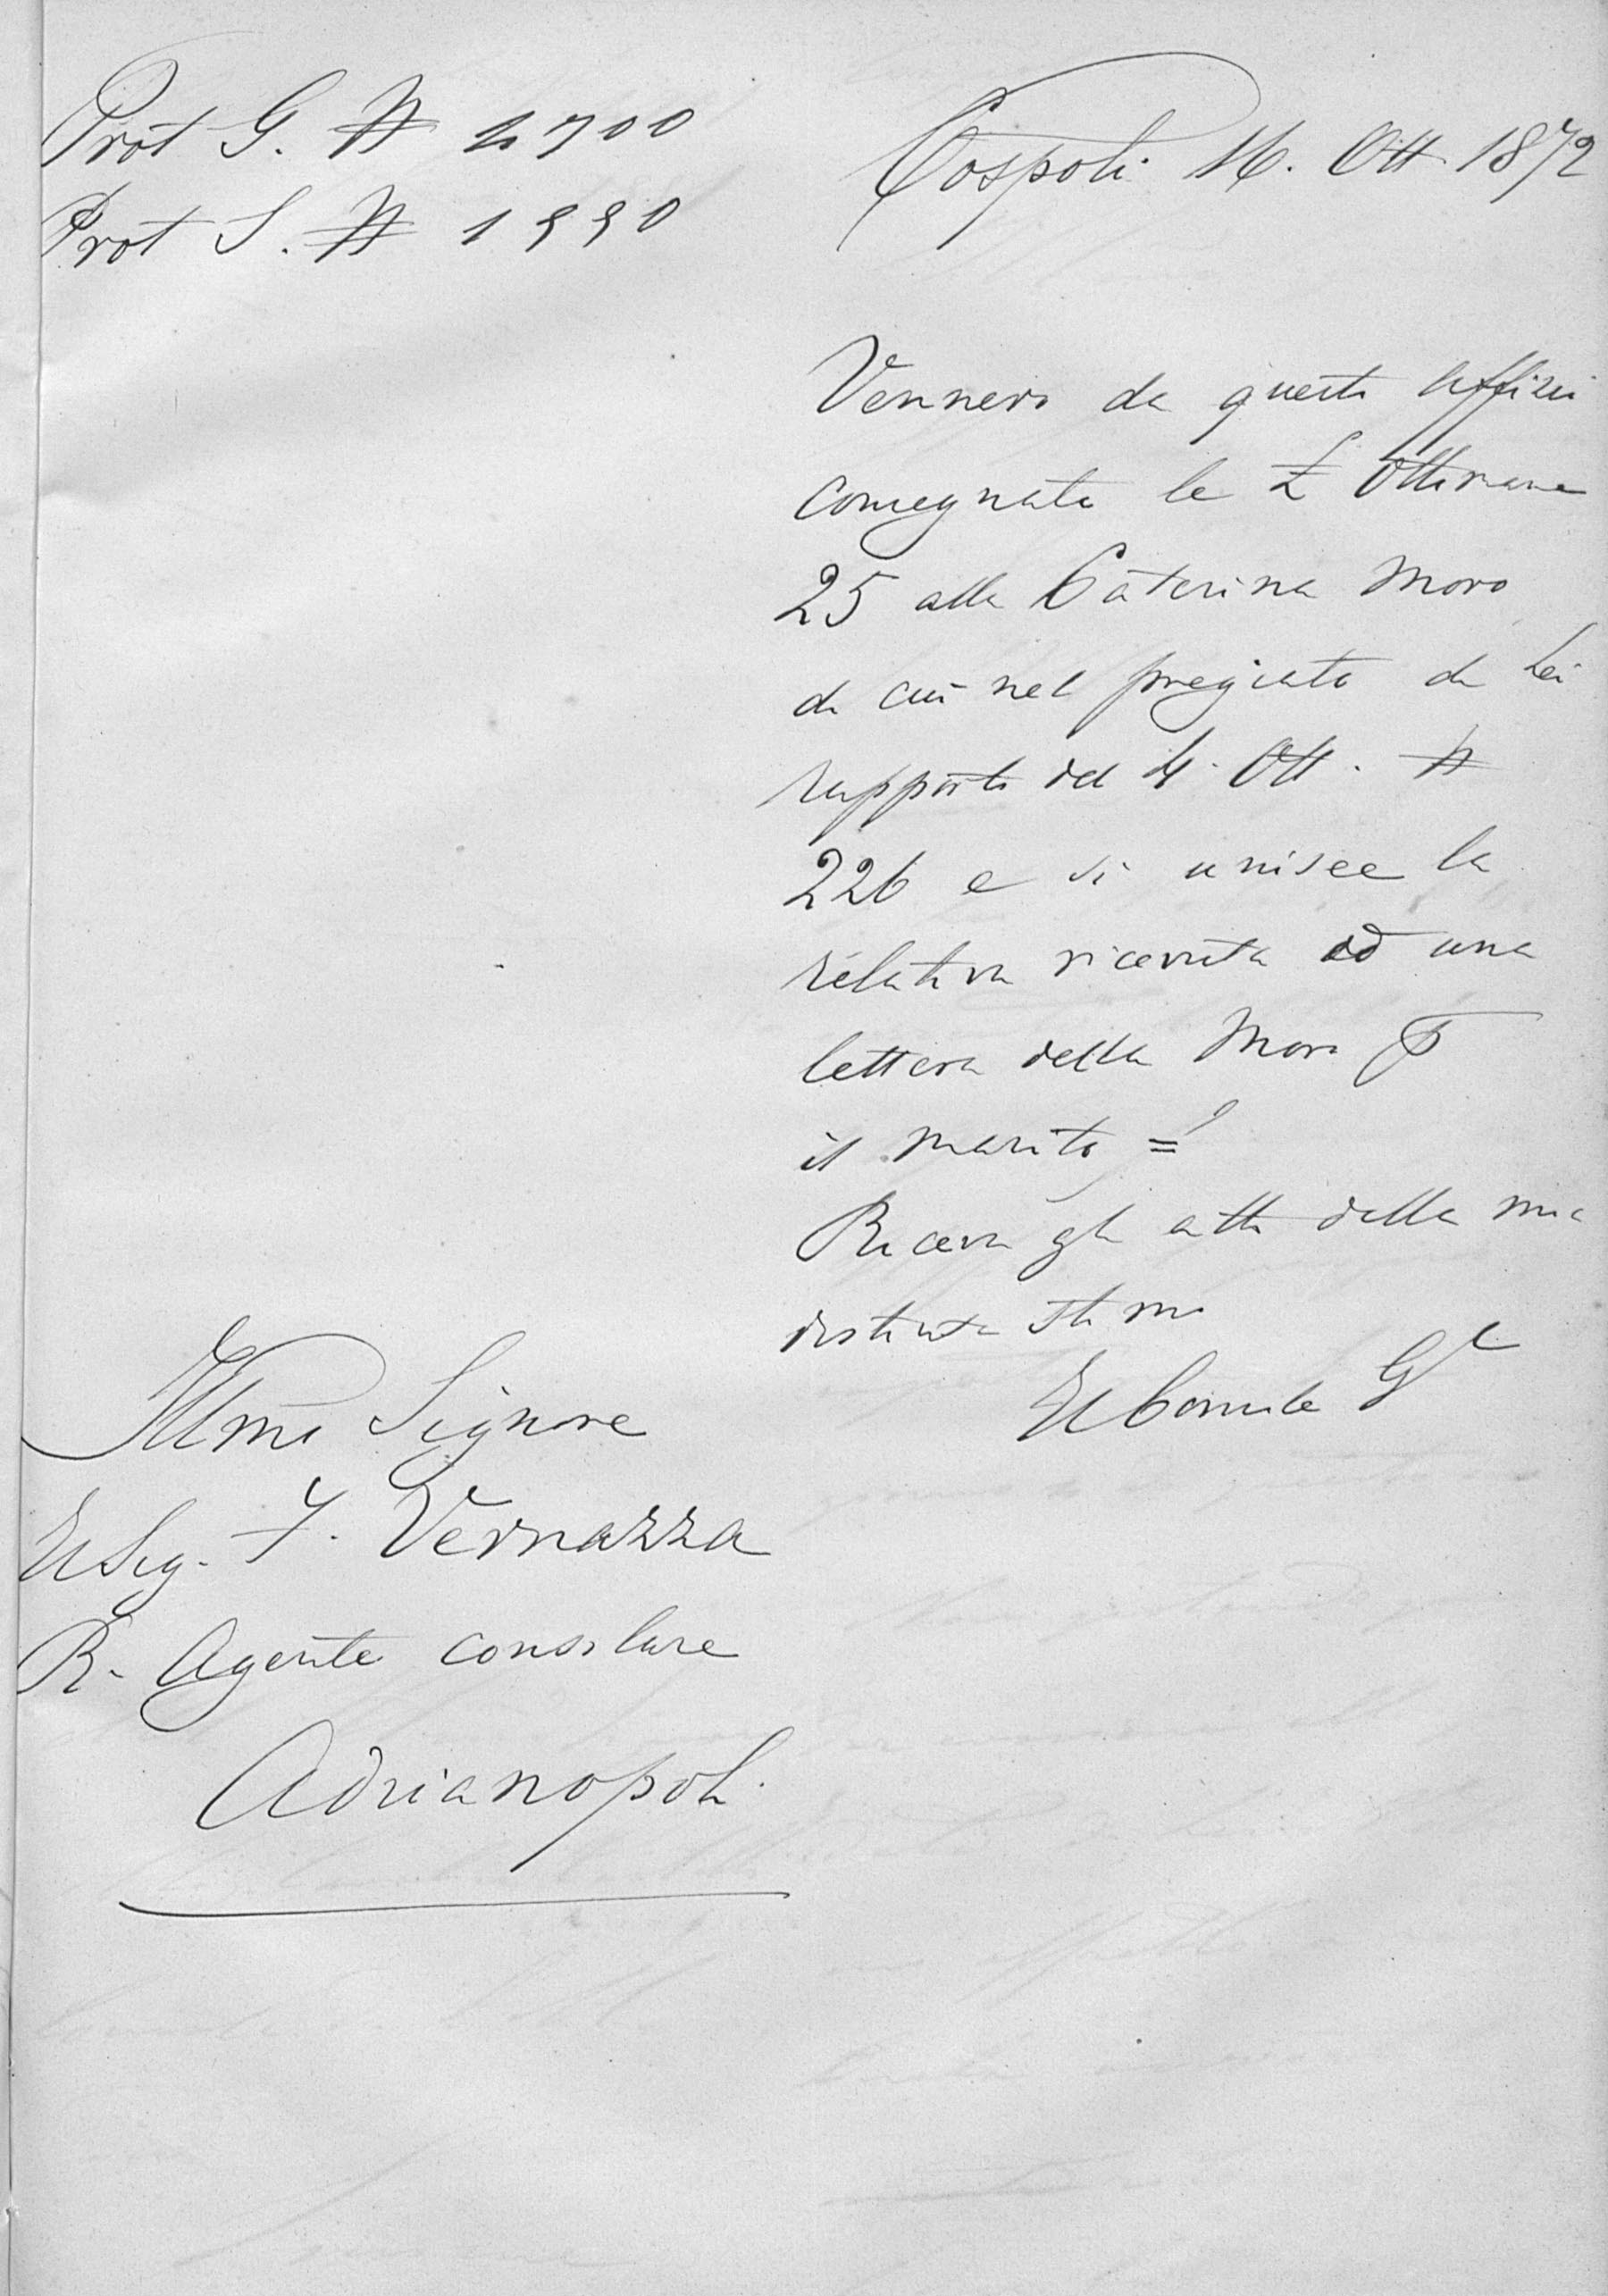 Prot G. N 2700
Prot S. N 1990
Cospoli 16. Ott. 1872
Vennero da questo Uffizio
consegnate le £ Ottomane
25 alla Caterina Moro
di cui nel pregiato di Lei
rapporto del 4. Ott. N
226 e si unisce la
relativa ricevuta ed una
lettera della Moro P
il marito =
Riceva gli atti della mia
distinta stima
Il Console G.le
Illmo Signore
Il Sig. F. Vernazza
R. Agente consolare
Adrianopoli